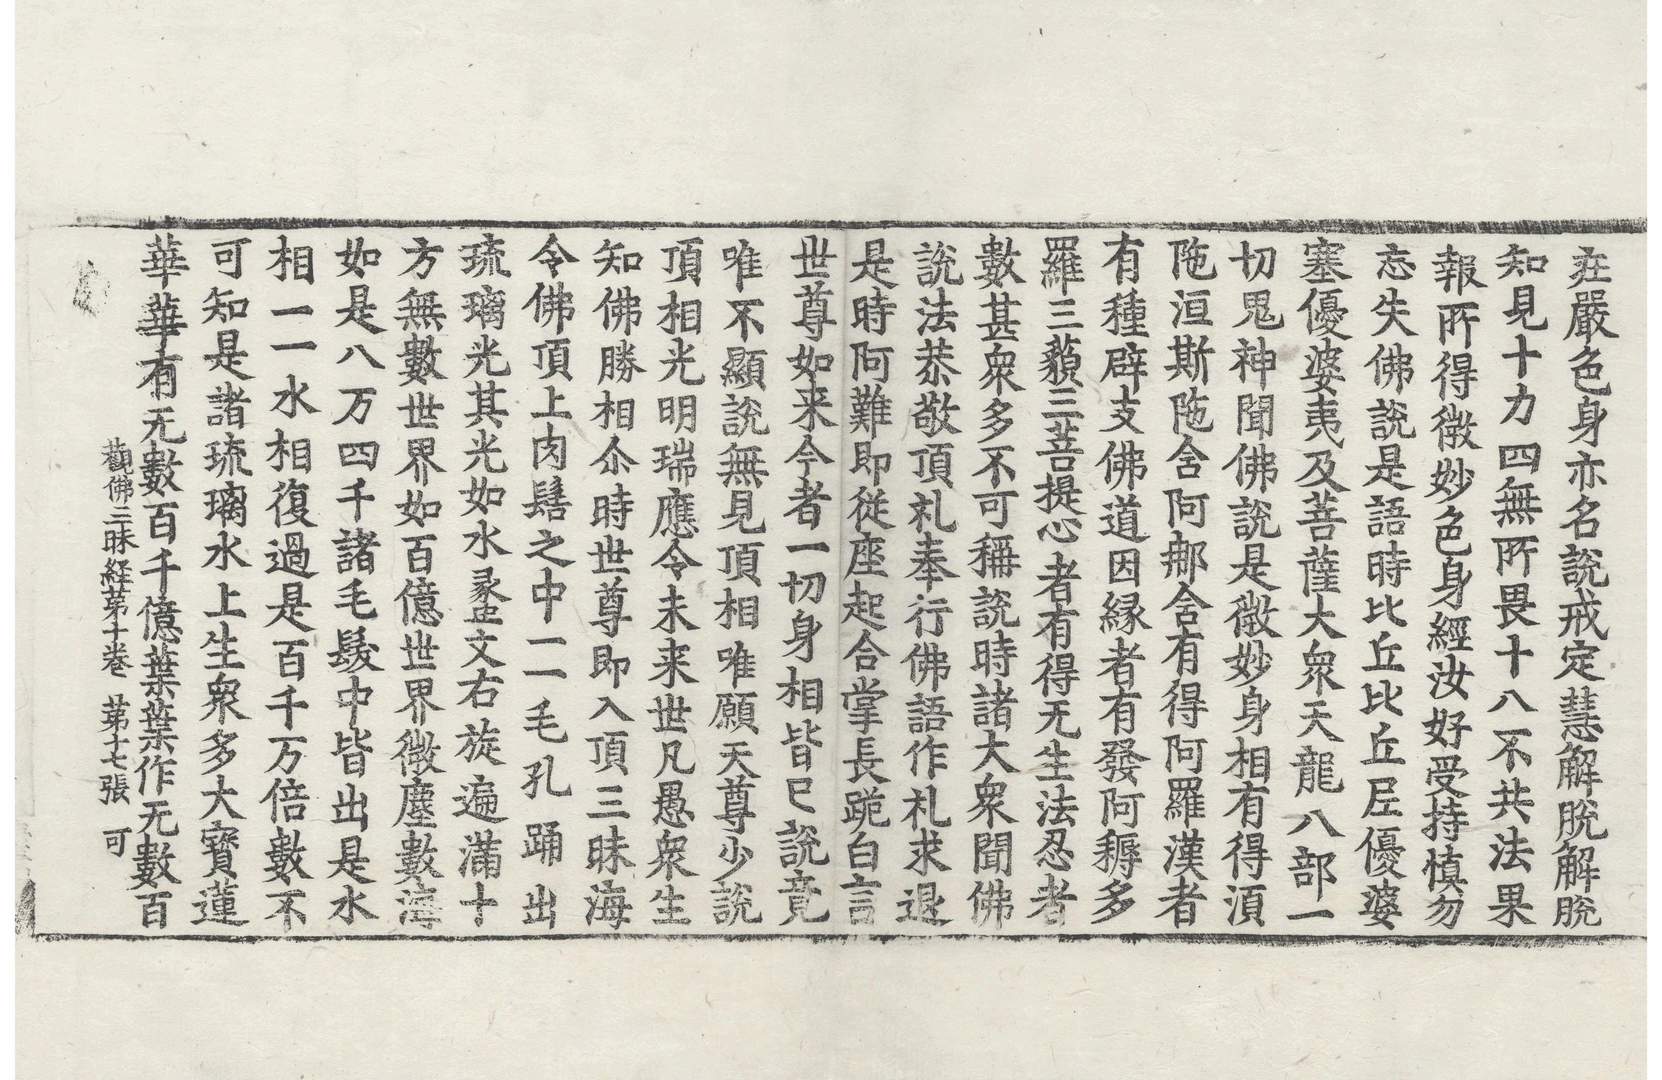 在嚴色身亦名說戒定慧解脫解脫
知見十力四無所畏十八不共法果
報所得微妙色身經汝好受持慎勿
忘失佛說是語時比丘比丘尼優婆
塞優婆夷及菩薩大衆天龍八部一
切鬼神聞佛說是微妙身相有得湏
陁洹斯陁含阿那含有得阿羅漢者
有種辟支佛道因縁者有發阿耨多
羅三藐三菩提心者有得无生法忍者
數甚衆多不可稱說時諸大衆聞佛
說法恭敬頂礼奉行佛語作礼求退
是時阿難即從座起合掌長跪白言
世尊如来今者一切身相皆已說竟
唯不顯說無見頂相唯願天尊少說
頂相光明瑞應令未来世凡愚衆生
知佛勝相尒時世尊即入頂三昧海
令佛頂上肉髻之中一一毛孔踊出
琉璃光其光如水彔㞢文右旋遍滿十
方無數世界如百億世界微塵數海
如是八万四千諸毛髮中皆出是水
相一一水相復過是百千万倍數不
可知是諸琉璃水上生衆多大寶蓮
華華有无數百千億葉葉作无數百
觀佛三昧経苐十卷 苐十七張 可